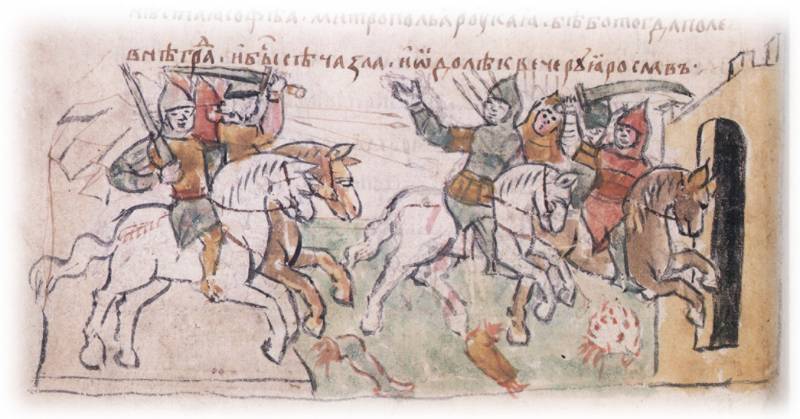 стаꙗ софѣꙗ . митропольꙗ роускаꙗ . бѣ бо тогда поле
внѣ граⷣ . и быⷭ сѣча зла . и ѡдолѣ к вечерꙋ ꙗрославъ ·